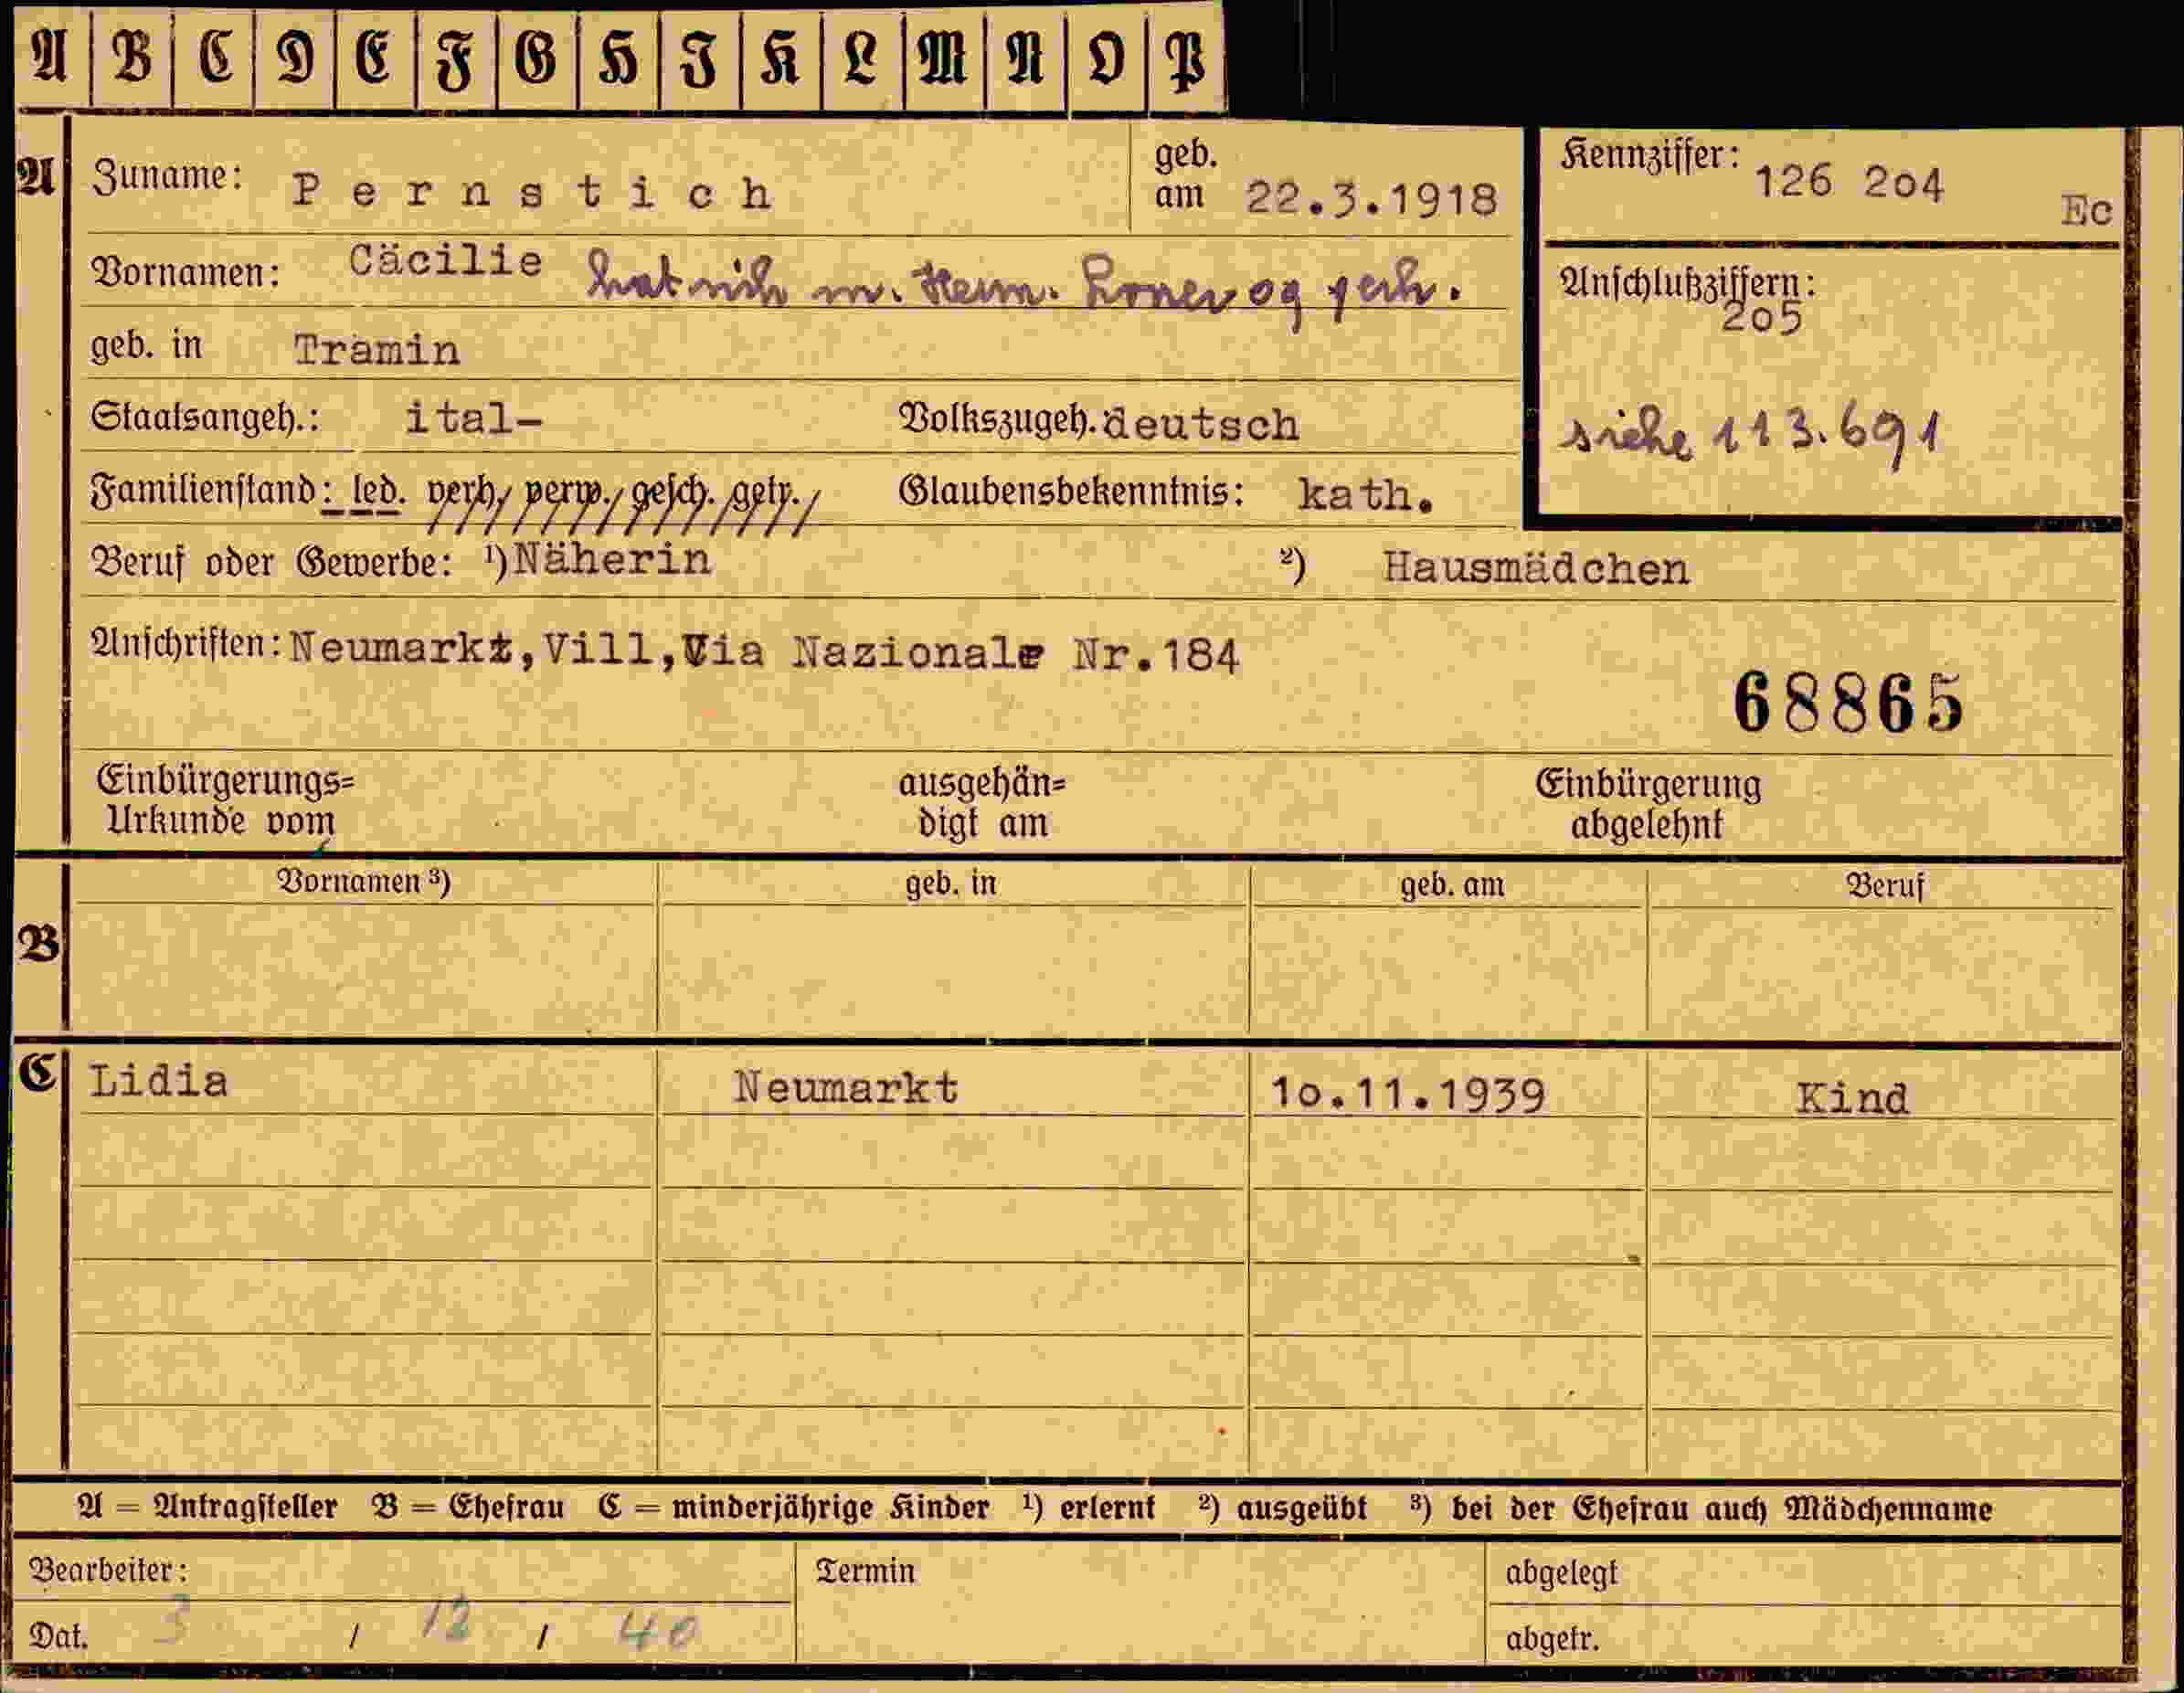 A B C D E F G H I K L M N O P
A Zuname: Pernstich geb. am 22.3.1918
Kennziffer: 126 2o4 Ec
Vornamen: Cäcilie hat sich m. Herm. verh.
Anschlußziffern: 2o5
geb. in Tramin
siehe 113.691
Staatsangeh.: ital- Volkszugeh. deutsch
Familienstand: led. verh., verw., gesch., getr., Glaubensbekenntnis: kath.
Beruf oder Gewerbe: ¹) Näherin ²) Hausmädchen
Anschriften: Neumarkt, Vill, Via Nazionale Nr. 184
68865
Einbürgerungs=
Urkunde vom
ausgehän=
digt am
Einbürgerung
abgelehnt
B Vornamen ³) geb. in geb. am Beruf
C Lidia Neumarkt 1o.11.1939 Kind
A = Antragsteller B = Ehefrau C = minderjährige Kinder ¹) erlernt ²) ausgeübt ³) bei der Ehefrau auch Mädchenname
Bearbeiter: Termin abgelegt
Dat. 3 / 12 / 40 abgetr.